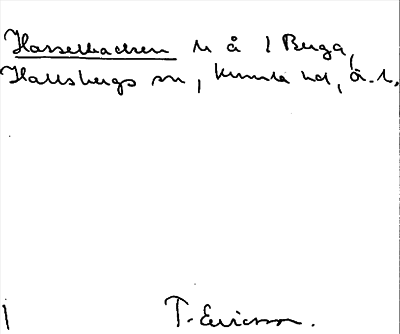 Hasselbacken u å l Berga,
Hallsbergs sn, Kumla hd, Ö. l.
T. Ericsson.